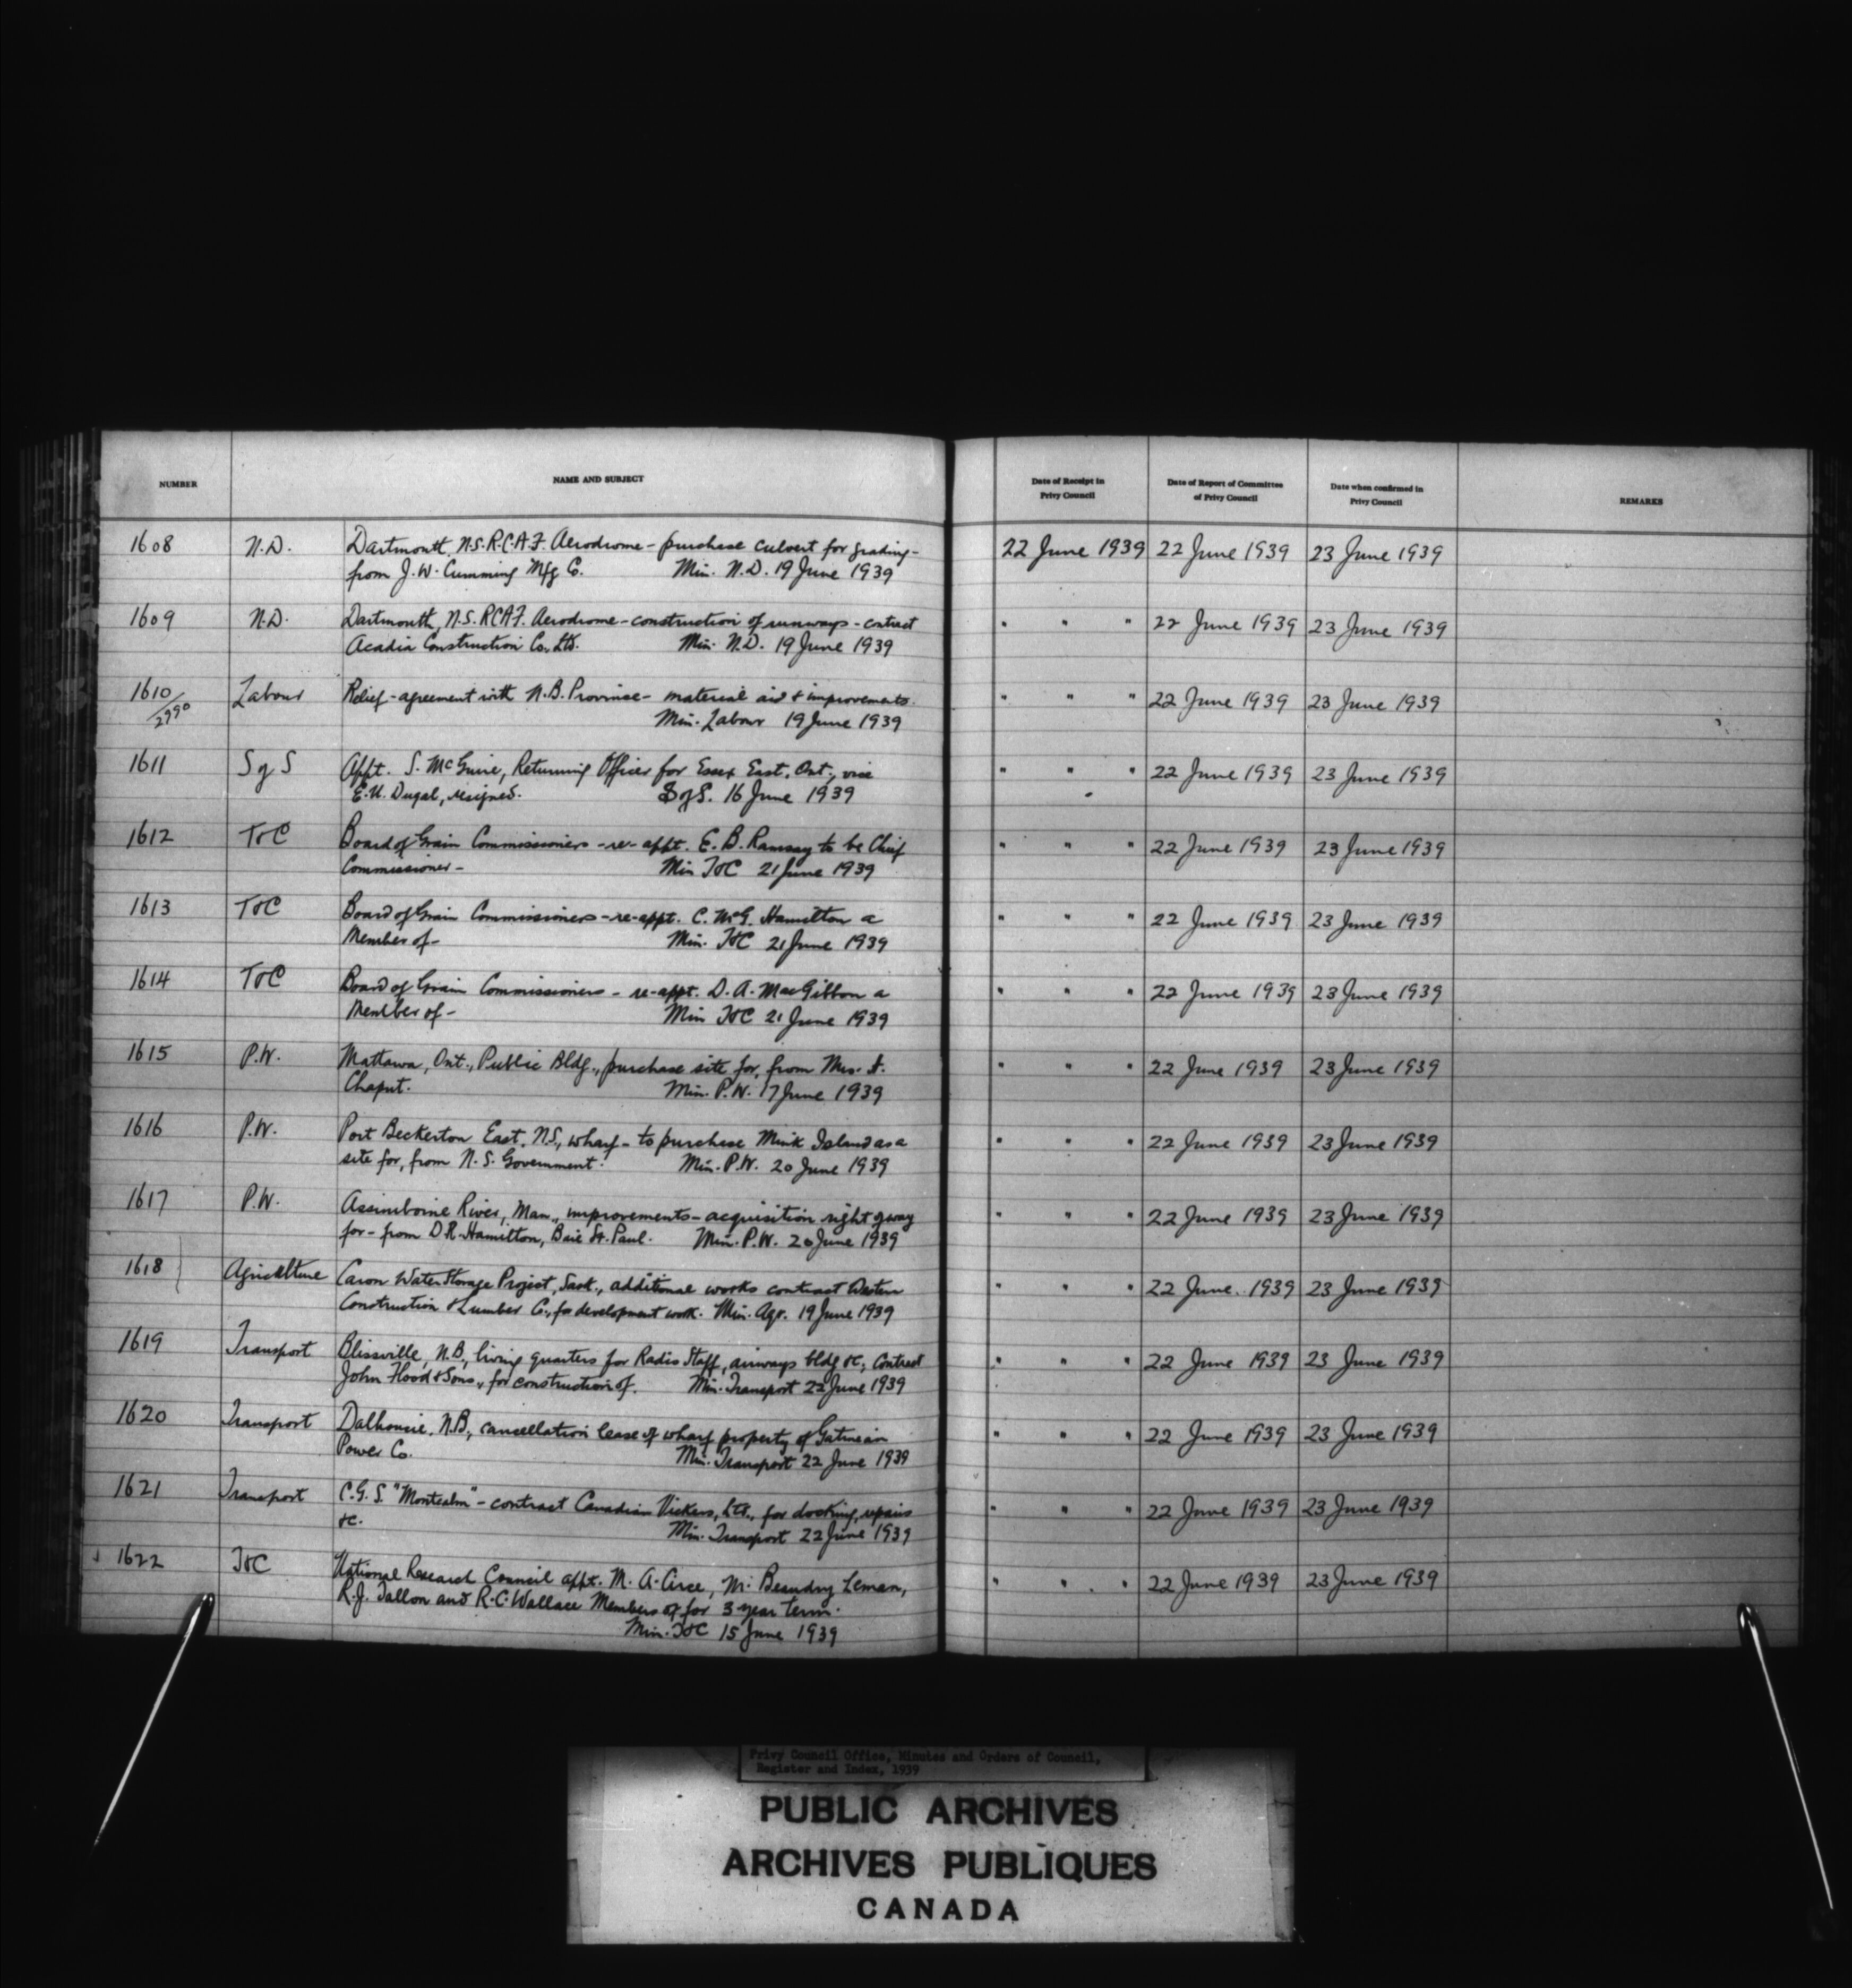 NUMBER NAME AND SUBJECT Date of Receipt in Privy Council Date of Report of Committee of Privy Council Date when confirmed in Privy Council REMARKS
1608 N.D. Dartmouth, N.S. R.C.A.F. Aerodrome - purchase culvert for grading - 22 June 1939 22 June 1939 23 June 1939
from J.W. Cumming Mfg Co. Min. N.D. 19 June 1939
1609 N.D. Dartmouth, N.S. RCAF. Aerodrome - construction of runways - contract " " " 22 June 1939 23 June 1939
Acadia Construction Co. Ltd. Min. N.D. 19 June 1939
1610/2990 Labour Relief - agreement with N.B. Province - material aid & improvements. " " " 22 June 1939 23 June 1939
Min. Labour 19 June 1939
1611 S of S Appt. S. McGuire, Returning Officer for Essex East, Ont., vice " " " 22 June 1939 23 June 1939
E.U. Dugal, resigned. S of S. 16 June 1939
1612 T&C Board of Grain Commissioners - re-appt. E.B. Ramsay to be Chief " " " 22 June 1939 23 June 1939
Commissioner - Min T&C 21 June 1939
1613 T&C Board of Grain Commissioners - re-appt. C. McG. Hamilton a " " " 22 June 1939 23 June 1939
Member of - Min. T&C 21 June 1939
1614 T&C Board of Grain Commissioners - re-appt. D.A. MacGibbon a " " " 22 June 1939 23 June 1939
Member of - Min T&C 21 June 1939
1615 P.W. Mattawa, Ont., Public Bldg., purchase site for, from Mrs. " " " 22 June 1939 23 June 1939
Chaput. Min. P.W. 17 June 1939
1616 P.W. Port Beckerton East, N.S., wharf - to purchase Mink Island as a " " " 22 June 1939 23 June 1939
site for, from N.S. Government. Min. P.W. 20 June 1939
1617 P.W. Assiniboine River, Man., improvements - acquisition right of way " " " 22 June 1939 23 June 1939
for - from D.R. Hamilton, Baie St. Paul. Min. P.W. 20 June 1939
1618 Agriculture Caron Water Storage Project, Sask., additional works contract Western " " " 22 June 1939 23 June 1939
Construction & Lumber Co., for development work. Min. Agr. 19 June 1939
1619 Transport Blissville, N.B., living quarters for Radio Staff, airways bldg &c; Contract " " " 22 June 1939 23 June 1939
John Flood & Sons, for construction of. Min. Transport 22 June 1939
1620 Transport Dalhousie, N.B., cancellation lease of wharf property of Gatineau " " " 22 June 1939 23 June 1939
Power Co. Min. Transport 22 June 1939
1621 Transport C.G.S. "Montcalm" - contract Canadian Vickers, Ltd., for docking, repairs " " " 22 June 1939 23 June 1939
&c. Min. Transport 22 June 1939
1622 T&C National Research Council appt. M. A. Beaudry Leman, " " " 22 June 1939 23 June 1939
R.J. Tallon and R.C. Wallace Members of for 3 year term.
Min. T&C 15 June 1939
Privy Council Office, Minutes and Orders of Council,
Register and Index, 1939
PUBLIC ARCHIVES
ARCHIVES PUBLIQUES
CANADA